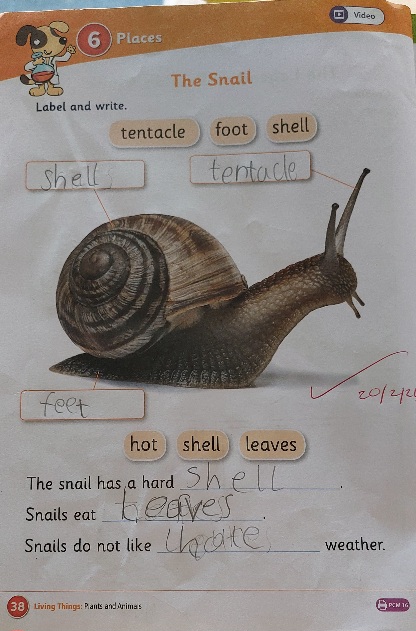 6 Places
Video
The Snail
Label and write.
tentacle foot shell
shell tentacle
feet
20/2/2
hot shell leaves
The snail has a hard shell.
Snails eat leaves.
Snails do not like weather.
38 Living Things: Plants and Animals
PCM 16